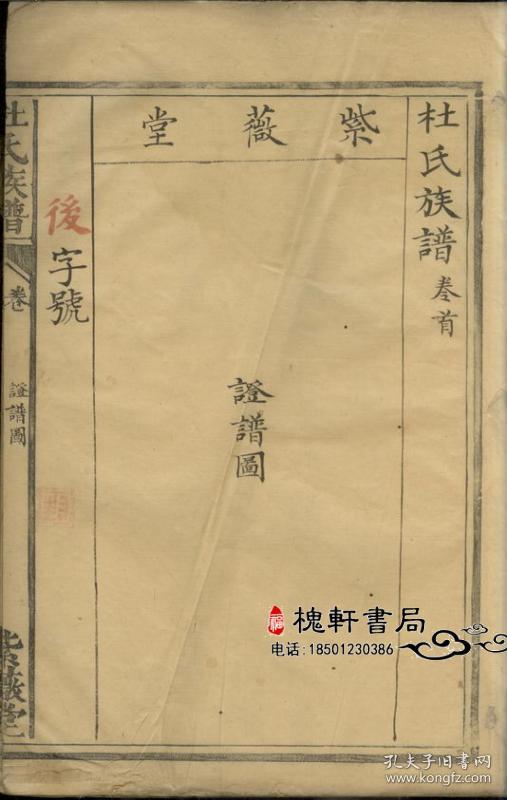 杜氏族譜 卷首
紫薇堂
證譜圖
後字號
杜氏族譜
卷
證譜圖
紫薇堂
槐軒書局
电话:18501230386
孔夫子旧书网
www.kongfz.com